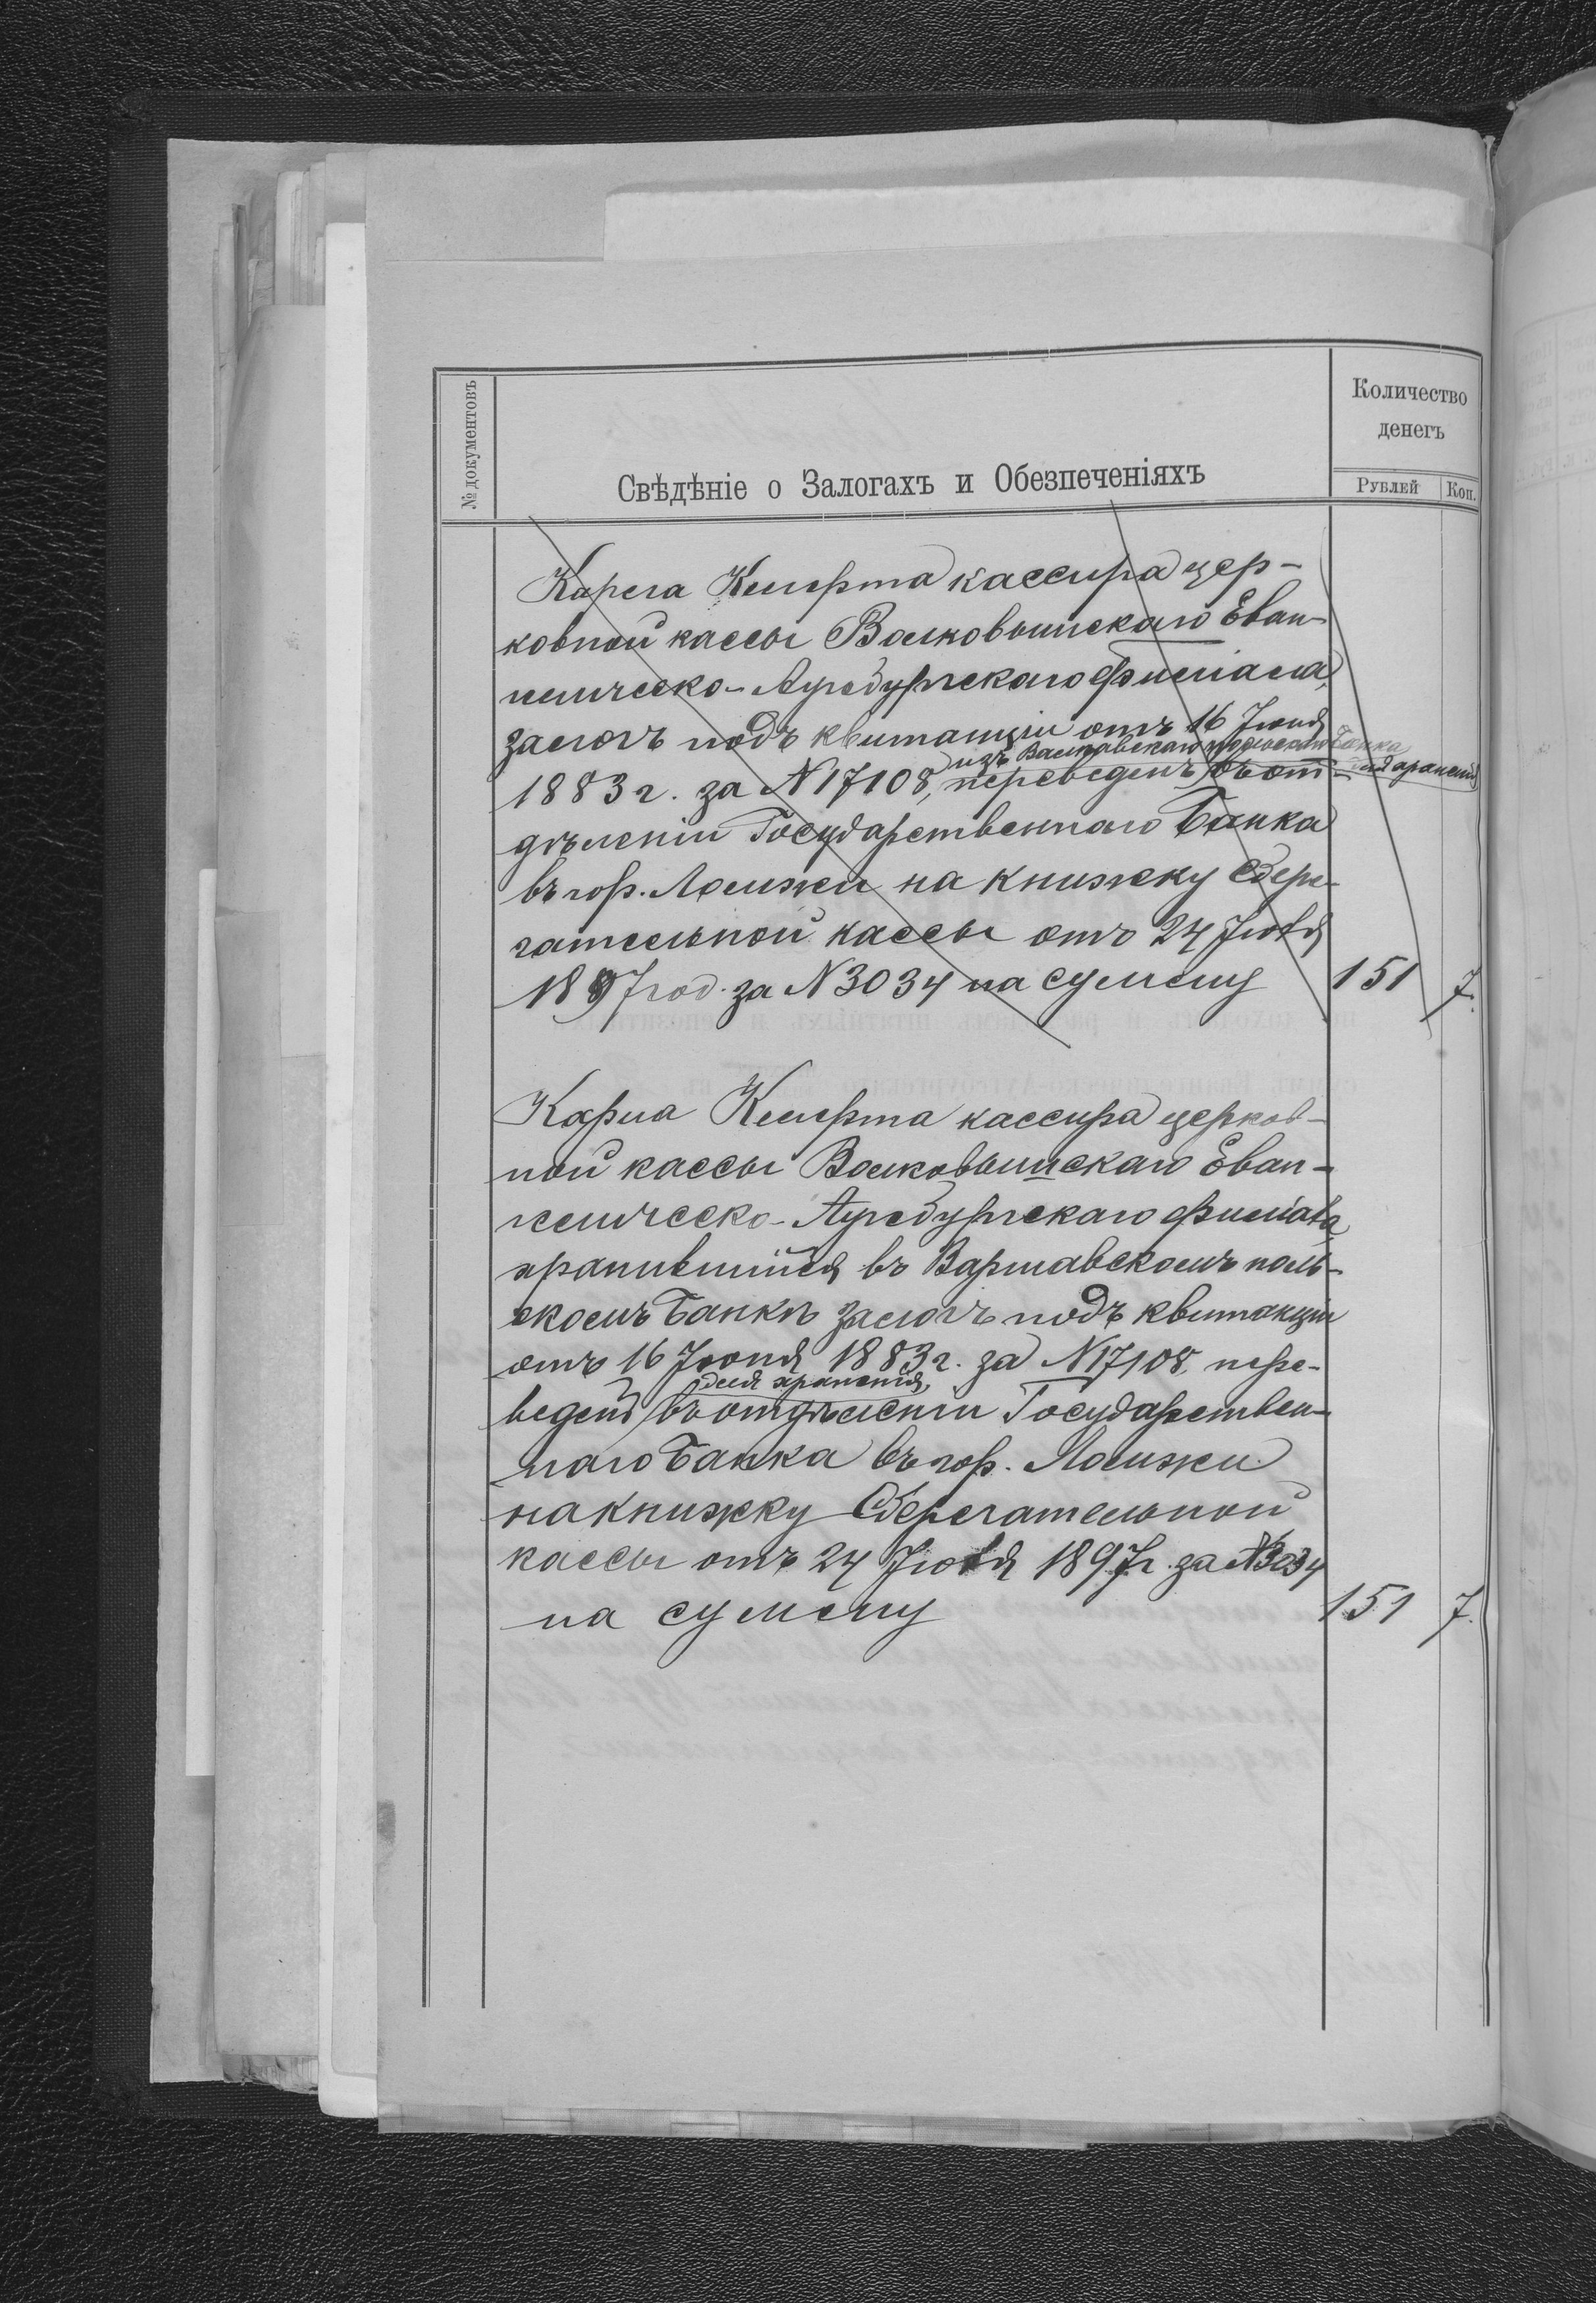 № документовъ
Свѣдѣніе о Залогахъ и Обезпеченіяхъ
Количество
денегъ
Рублей Коп.
Карла Кемерта кассира цер-
ковной кассы Волковышскаго Еван-
гелическо-Аугсбургскаго Филіала,
залогъ подъ квитанціи отъ 16 Іюня
изъ Варшавскаго польскаго Банка
1883 г. за N 17108, переведенъ въ от- для храненія
дѣленіи Государственнаго Банка
въ гор. Ломжи на книжку Сбере-
гательной кассы отъ 24 Іюля
1897 год. за N 3034 на сумму 151 7.
Карла Кемерта кассира церков-
ной кассы Волковышскаго Еван-
гелическо-Аугсбургскаго Филіала
хранившійся въ Варшавскомъ поль-
скомъ Банкѣ залогъ подъ квитанціи
отъ 16 Іюня 1883 г. за N 17108, пере-
для храненія,
веденъ въ отдѣленіи Государствен-
наго Банка въ гор. Ломжи
на книжку Сберегательной
кассы отъ 24 Іюля 1897 г. за N 3034
на сумму 151 7.